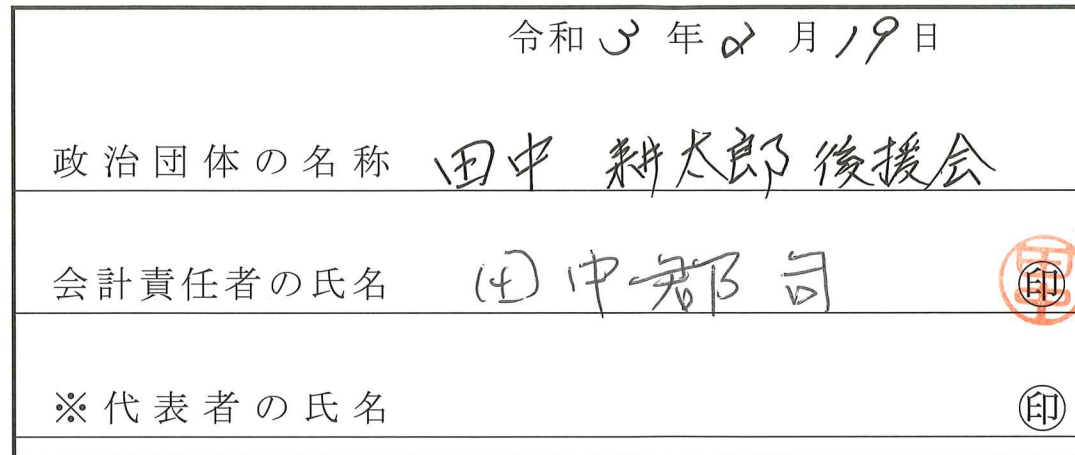 令和3年2月19日
政治団体の名称 田中 耕太郎後援会
会計責任者の氏名 田中郡司 ㊞
※代表者の氏名 ㊞